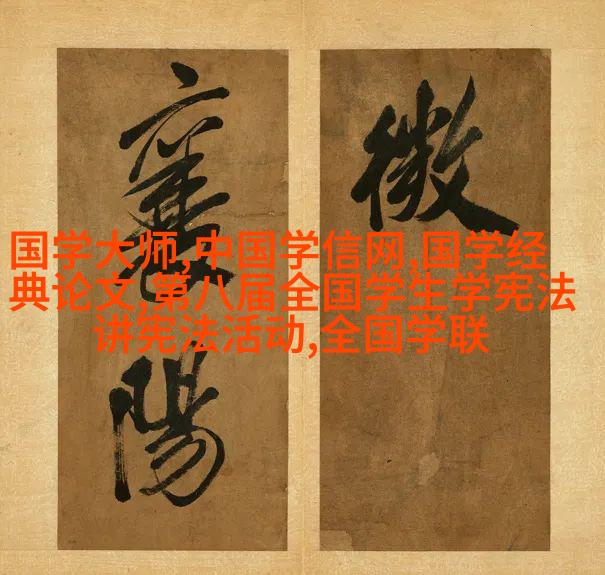 微
襄陽
国学大师,中国学信网,国学经
典论文,第八届全国学生学宪法
讲宪法活动,全国学联